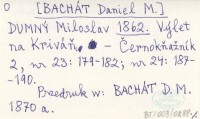 O [BACHÁT Daniel M.]
DUMNÝ Miloslav 1862. Výlet
na Kriváň, – Černokňažník
2, nr 23: 179-182; nr 24: 187-
-190.
Przedruk w: BACHÁT D.M.
1870 a.